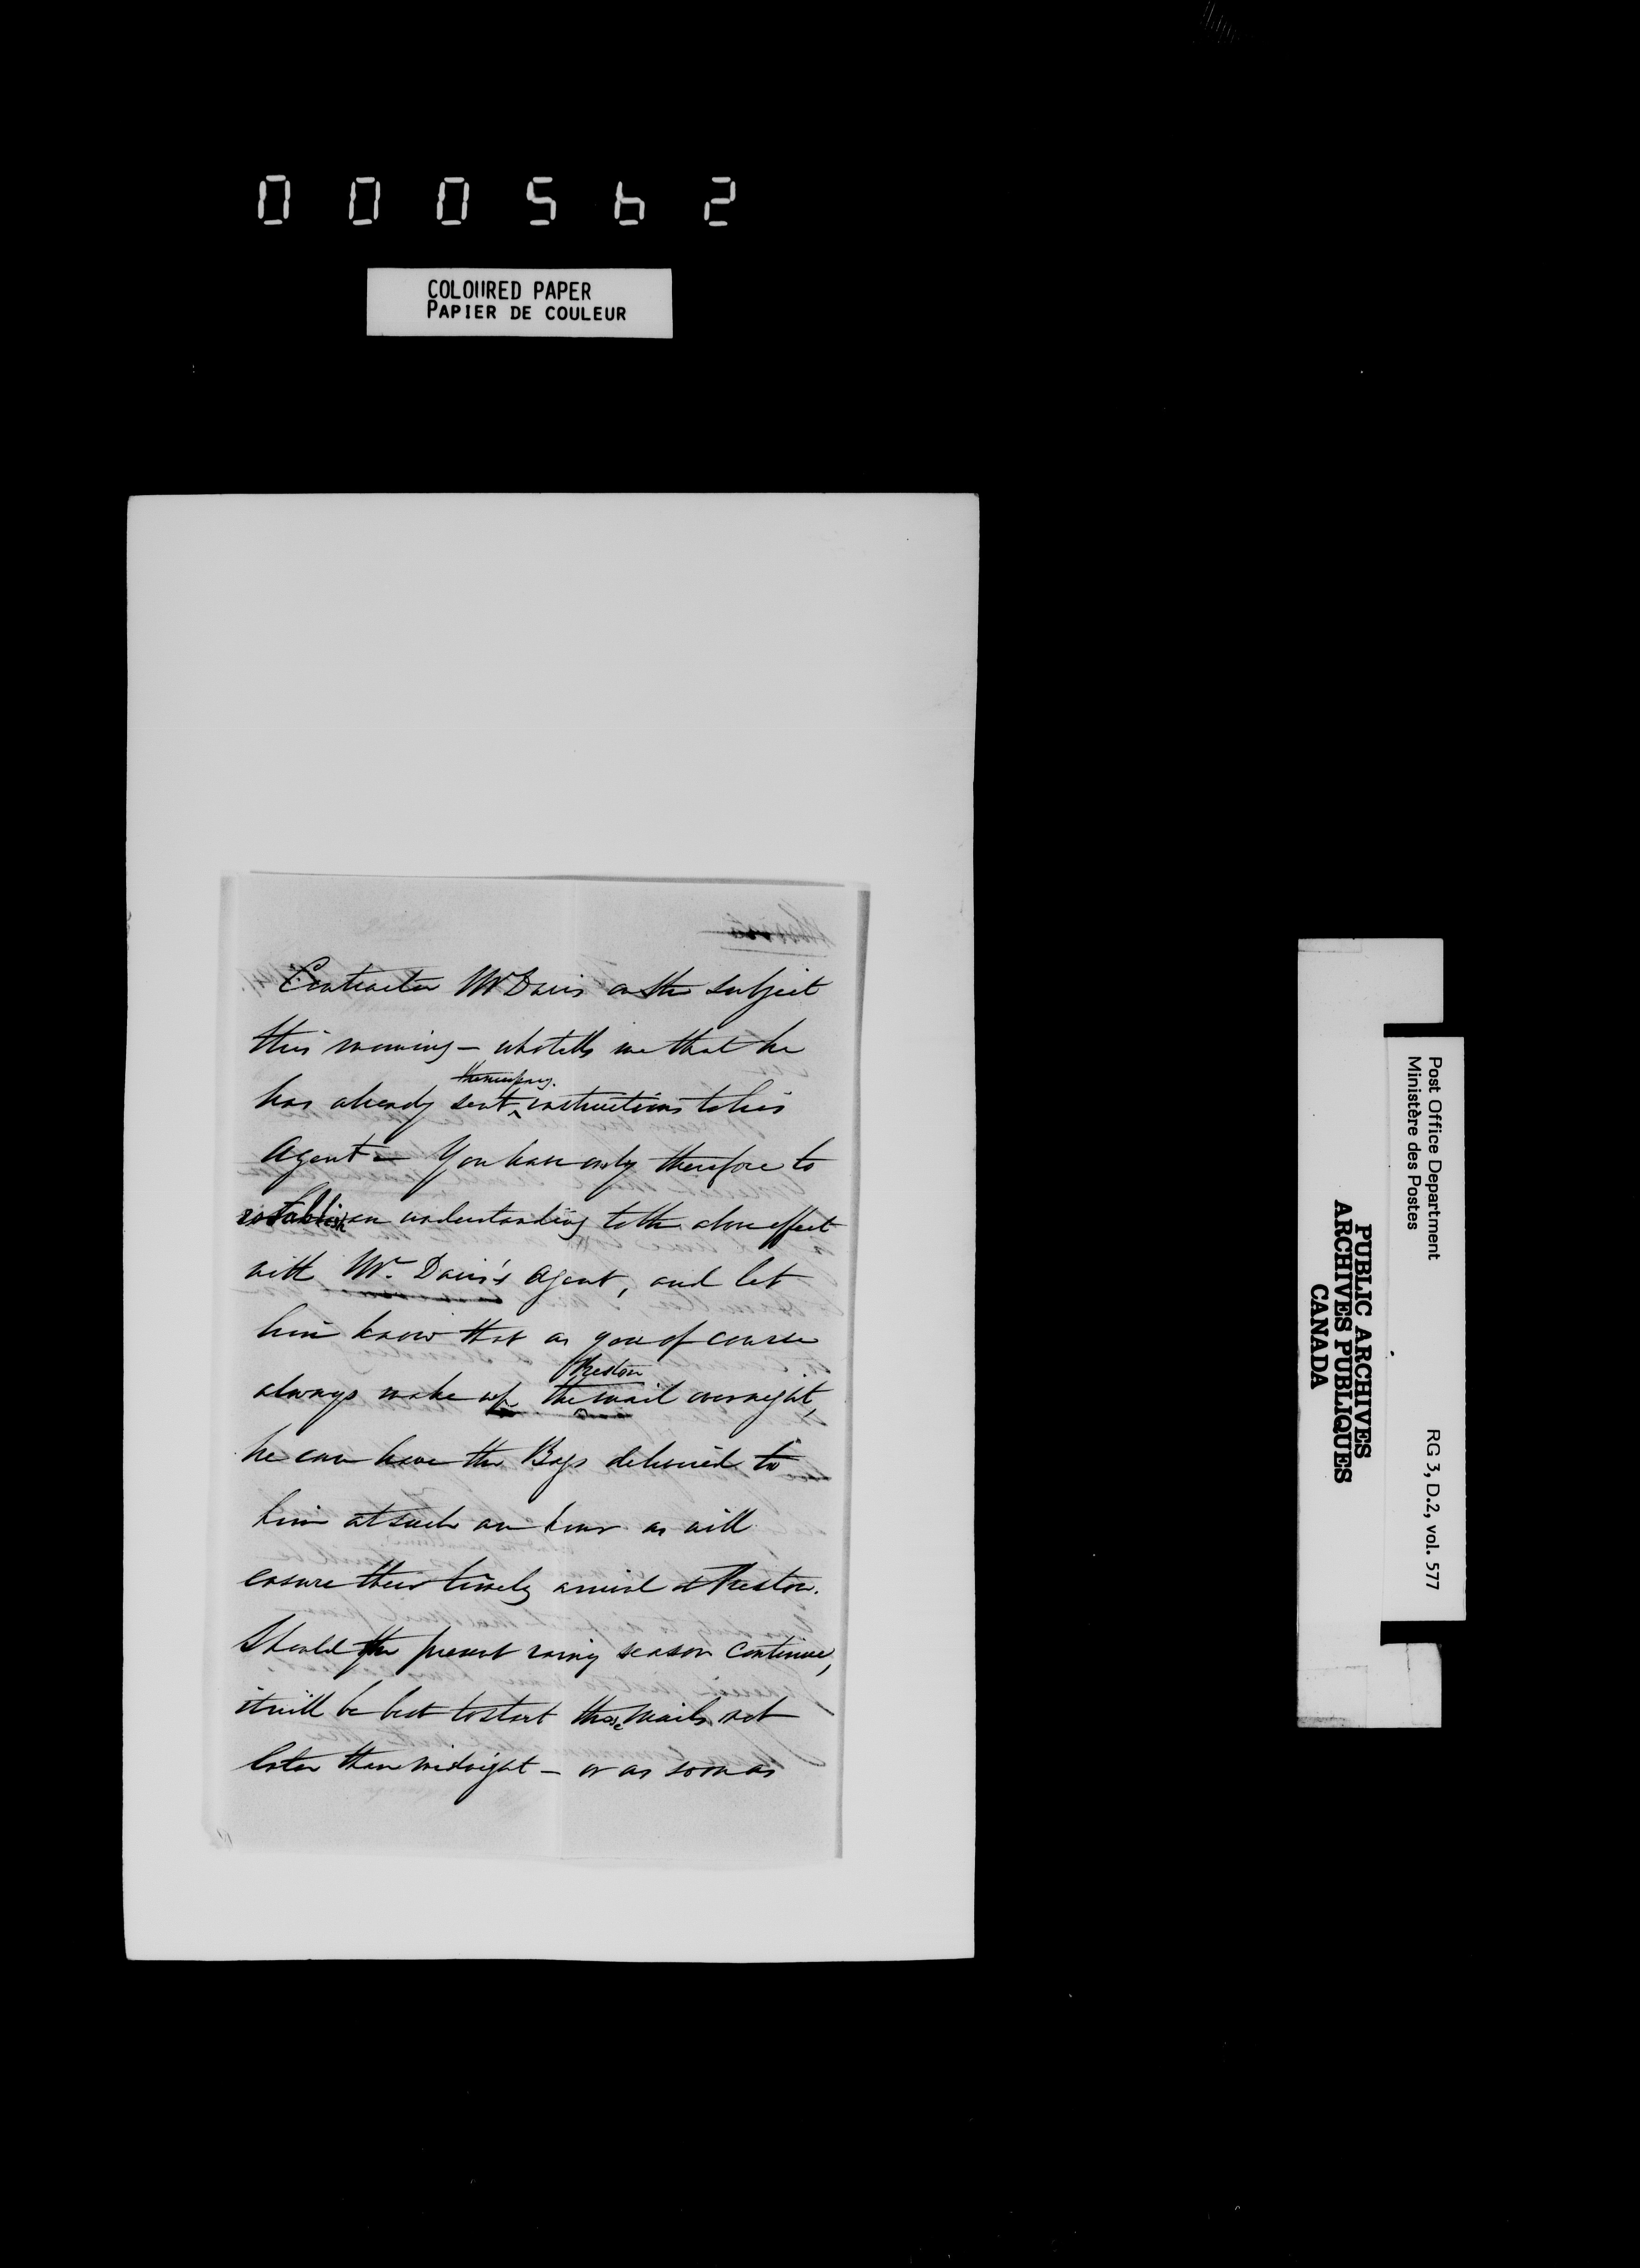 000562
COLOURED PAPER
PAPIER DE COULEUR
Contractor Mr Davis on the subject
this morning – who tells me that he
has already sent the necessary instructions to his
Agent – You have only therefore to
establish an understanding to the above effect
with Mr. Davis's Agent, and let
him know that as you of course
always make up the Preston mail overnight,
he can have the Bags delivered to
him at such an hour as will
ensure their timely arrival at Preston.
Should the present rainy season continue,
it will be best to start these mails not
later than midnight – or as soon as
Post Office Department
Ministère des Postes
RG 3, D.2, vol. 577
PUBLIC ARCHIVES
ARCHIVES PUBLIQUES
CANADA